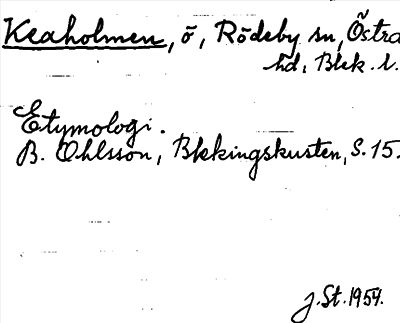 Keaholmen, ö, Rödeby sn, Östra
hd, Blek. l.
Etymologi.
B. Ohlsson, Blekingskusten, S. 15.
J. St. 1954.